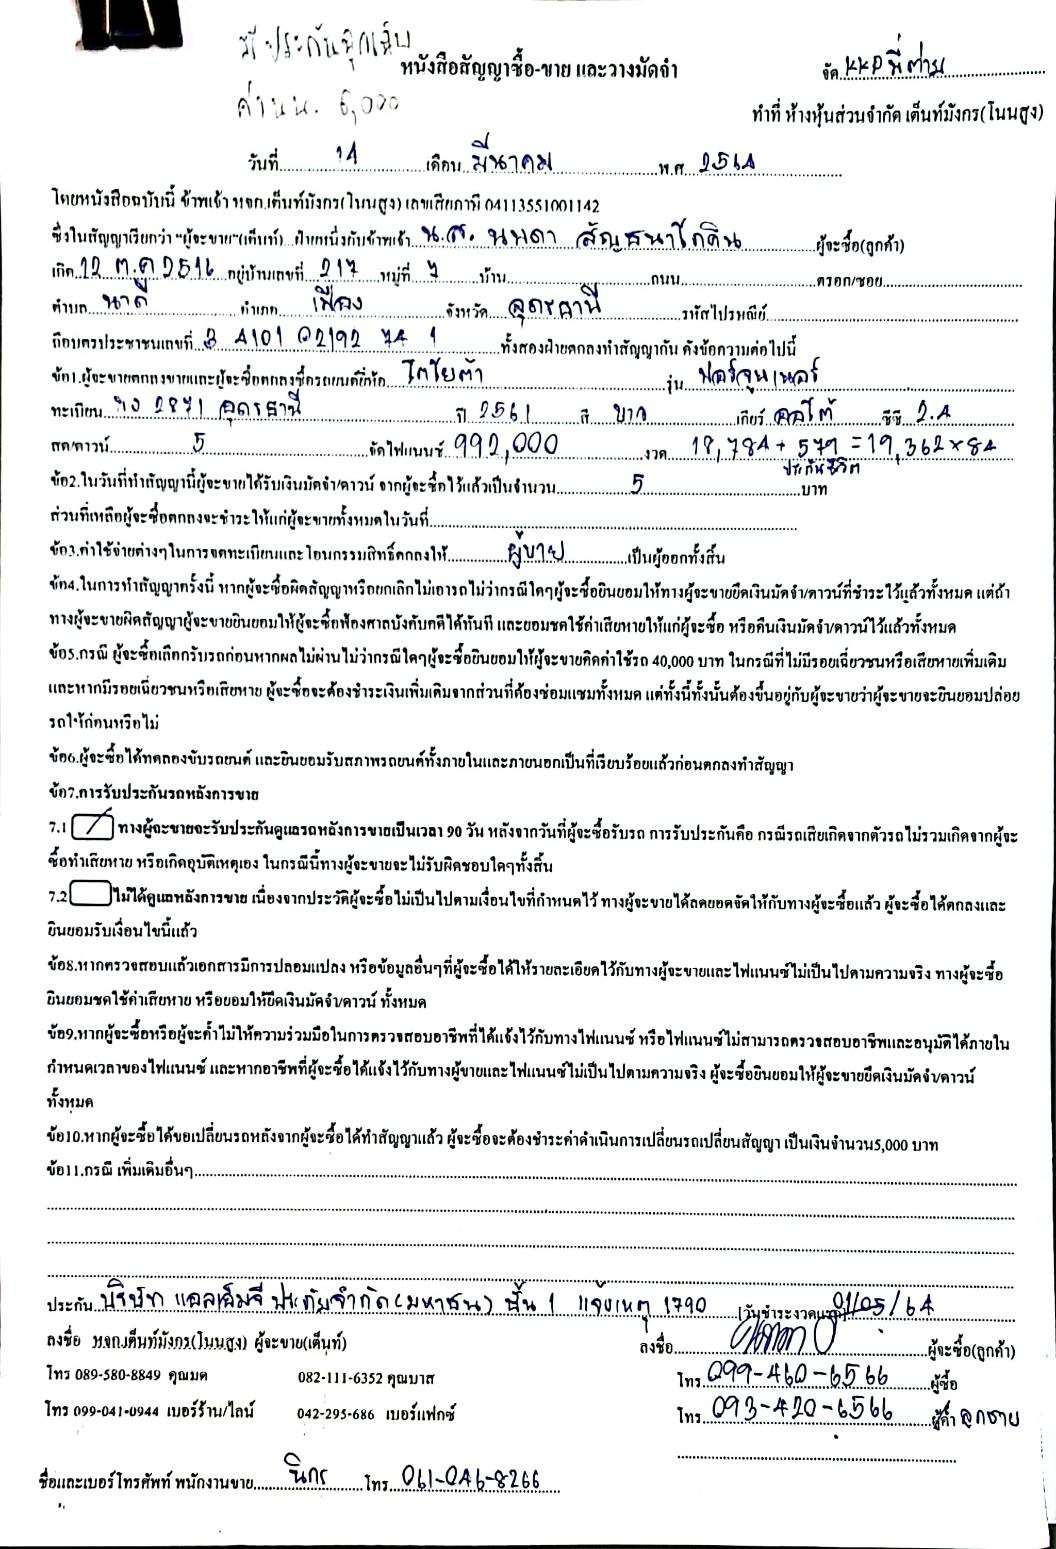 มีประกันฉุกเฉิน
หนังสือสัญญาซื้อ-ขาย และวางมัดจำ
จัด KKP พี่ต่าย
ค่านน. 6,000
ทำที่ ห้างหุ้นส่วนจำกัด เต็นท์มังกร(โนนสูง)
วันที่ 14 เดือน มีนาคม พ.ศ 2564
โดยหนังสือฉบับนี้ ข้าพเจ้า หจก.เต็นท์มังกร(โนนสูง) เลขเสียภาษี 04113551001142
ซึ่งในสัญญาเรียกว่า "ผู้จะขาย"(เต็นท์) ฝ่ายหนึ่งกับข้าพเจ้า น.ส. นพดา สัญธนาโภคิน ผู้จะซื้อ(ลูกค้า)
เกิด 12 ต.ค 2516 อยู่บ้านเลขที่ 217 หมู่ที่ 7 บ้าน ถนน ตรอก/ซอย
ตำบล นาดี อำเภอ เมือง จังหวัด อุดรธานี รหัสไปรษณีย์
ถือบัตรประชาชนเลขที่ 3 4101 02192 74 1 ทั้งสองฝ่ายตกลงทำสัญญากัน ดังข้อความต่อไปนี้
ข้อ1.ผู้จะขายตกลงขายและผู้จะซื้อตกลงซื้อรถยนต์ยี่ห้อ โตโยต้า รุ่น ฟอร์จูนเนอร์
ทะเบียน 2871 อุดรธานี ปี 2561 สี ขาว เกียร์ ออโต้ ซีซี 2.4
สด/ดาวน์ 5 จัดไฟแนนซ์ 992,000 งวด 18,784 + 579 = 19,362 x 84
ประกันชีวิต
ข้อ2.ในวันที่ทำสัญญานี้ผู้จะขายได้รับเงินมัดจำ/ดาวน์ จากผู้จะซื้อไว้แล้วเป็นจำนวน 5 บาท
ส่วนที่เหลือผู้จะซื้อตกลงจะชำระให้แก่ผู้จะขายทั้งหมดในวันที่
ข้อ3.ค่าใช้จ่ายต่างๆในการจดทะเบียนและโอนกรรมสิทธิ์ตกลงให้ ผู้ขาย เป็นผู้ออกทั้งสิ้น
ข้อ4.ในการทำสัญญาครั้งนี้ หากผู้จะซื้อผิดสัญญาหรือยกเลิกไม่เอารถไม่ว่ากรณีใดๆผู้จะซื้อยินยอมให้ทางผู้จะขายยึดเงินมัดจำ/ดาวน์ที่ชำระไว้แล้วทั้งหมด แต่ถ้า
ทางผู้จะขายผิดสัญญาผู้จะขายยินยอมให้ผู้จะซื้อฟ้องศาลบังคับคดีได้ทันที และยอมชดใช้ค่าเสียหายให้แก่ผู้จะซื้อ หรือคืนเงินมัดจำ/ดาวน์ไว้แล้วทั้งหมด
ข้อ5.กรณี ผู้จะซื้อเลือกรับรถก่อนหากผลไม่ผ่านไม่ว่ากรณีใดๆผู้จะซื้อยินยอมให้ผู้จะขายคิดค่าใช้รถ 40,000 บาท ในกรณีที่ไม่มีรอยเฉี่ยวชนหรือเสียหายเพิ่มเติม
และหากมีรอยเฉี่ยวชนหรือเสียหาย ผู้จะซื้อจะต้องชำระเงินเพิ่มเติมจากส่วนที่ต้องซ่อมแซมทั้งหมด แต่ทั้งนี้ทั้งนั้นต้องขึ้นอยู่กับผู้จะขายว่าผู้จะขายจะยินยอมปล่อย
รถให้ก่อนหรือไม่
ข้อ6.ผู้จะซื้อได้ทดลองขับรถยนต์ และยินยอมรับสภาพรถยนต์ทั้งภายในและภายนอกเป็นที่เรียบร้อยแล้วก่อนตกลงทำสัญญา
ข้อ7.การรับประกันรถหลังการขาย
7.1 / ทางผู้จะขายจะรับประกันดูแลรถหลังการขายเป็นเวลา 90 วัน หลังจากวันที่ผู้จะซื้อรับรถ การรับประกันคือ กรณีรถเสียเกิดจากตัวรถไม่รวมเกิดจากผู้จะ
ซื้อทำเสียหาย หรือเกิดอุบัติเหตุเอง ในกรณีนี้ทางผู้จะขายจะไม่รับผิดชอบใดๆทั้งสิ้น
7.2 ไม่ได้ดูแลหลังการขาย เนื่องจากประวัติผู้จะซื้อไม่เป็นไปตามเงื่อนไขที่กำหนดไว้ ทางผู้จะขายได้ลดยอดจัดให้กับทางผู้จะซื้อแล้ว ผู้จะซื้อได้ตกลงและ
ยินยอมรับเงื่อนไขนี้แล้ว
ข้อ8.หากตรวจสอบแล้วเอกสารมีการปลอมแปลง หรือข้อมูลอื่นๆที่ผู้จะซื้อได้ให้รายละเอียดไว้กับทางผู้จะขายและไฟแนนซ์ไม่เป็นไปตามความจริง ทางผู้จะซื้อ
ยินยอมชดใช้ค่าเสียหาย หรือยอมให้ยึดเงินมัดจำ/ดาวน์ ทั้งหมด
ข้อ9.หากผู้จะซื้อหรือผู้จะค้ำไม่ให้ความร่วมมือในการตรวจสอบอาชีพที่ได้แจ้งไว้กับทางไฟแนนซ์ หรือไฟแนนซ์ไม่สามารถตรวจสอบอาชีพและอนุมัติได้ภายใน
กำหนดเวลาของไฟแนนซ์ และหากอาชีพที่ผู้จะซื้อได้แจ้งไว้กับทางผู้ขายและไฟแนนซ์ไม่เป็นไปตามความจริง ผู้จะซื้อยินยอมให้ผู้จะขายยึดเงินมัดจำ/ดาวน์
ทั้งหมด
ข้อ10.หากผู้จะซื้อได้ขอเปลี่ยนรถหลังจากผู้จะซื้อได้ทำสัญญาแล้ว ผู้จะซื้อจะต้องชำระค่าดำเนินการเปลี่ยนรถเปลี่ยนสัญญา เป็นเงินจำนวน5,000 บาท
ข้อ11.กรณี เพิ่มเติมอื่นๆ
ประกัน บริษัท แอลเอ็มจี ประกันจำกัด(มหาชน) ชั้น 1 แจ้งเหตุ 1790 วันชำระงวดแรก 01/05/64
ลงชื่อ หจก.เต็นท์มังกร(โนนสูง) ผู้จะขาย(เต็นท์) ลงชื่อ ผู้จะซื้อ(ลูกค้า)
โทร 089-580-8849 คุณมด 082-111-6352 คุณบาส โทร 099-460-6566 ผู้ซื้อ
โทร 099-041-0944 เบอร์ร้าน/ไลน์ 042-295-686 เบอร์แฟกซ์ โทร 093-420-6566 ผู้ค้ำ ลูกชาย
ชื่อและเบอร์โทรศัพท์ พนักงานขาย นิกร โทร 061-046-8266